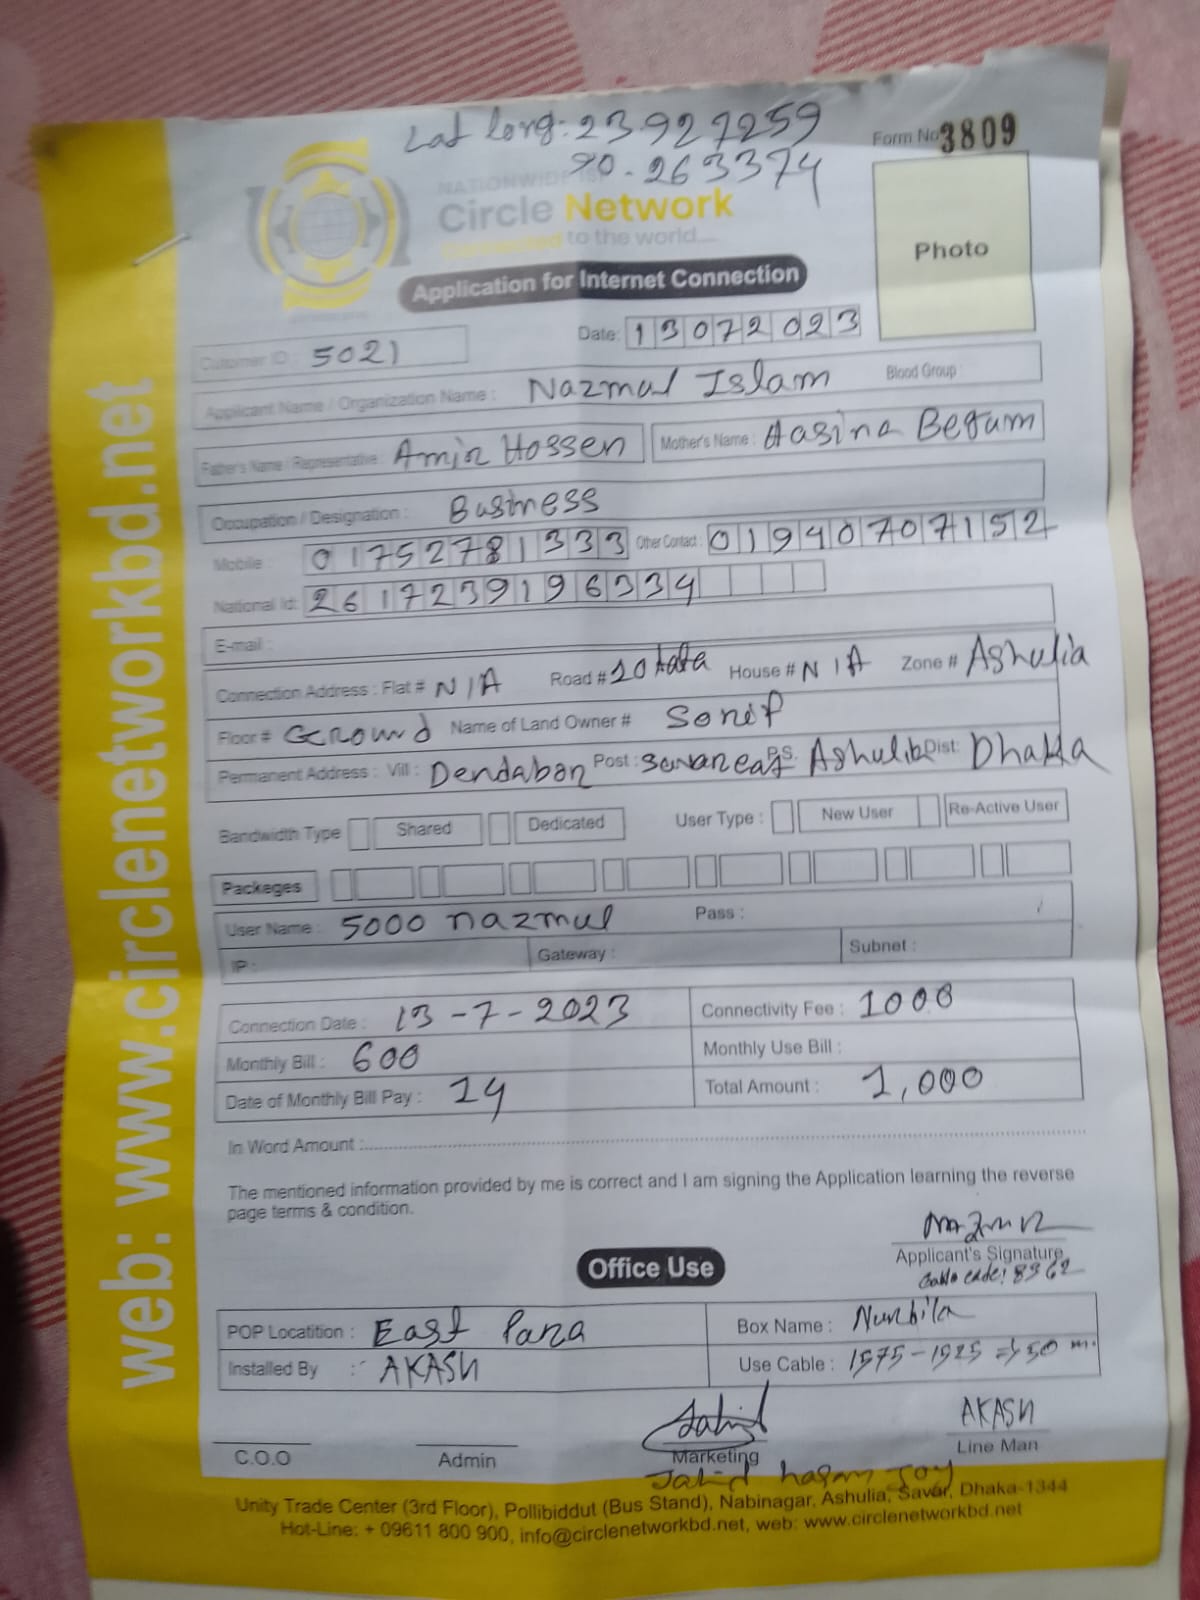 Lat long:- 23.927259
90.263374
Form No 3809
NATIONWIDE ISP
Circle Network
Connected to the world....
Photo
Application for Internet Connection
Date: 13072023
Customer ID : 5021
Applicant Name / Organization Name : Nazmul Islam Blood Group :
Father's Name / Representative : Amir Hossen Mother's Name : Hasina Begum
Occupation / Designation : Business
Mobile : 01752781333 Other Contact : 01940707152
National Id: 2617239196334
E-mail :
Connection Address : Flat # N/A Road # 20 House # N/A Zone # Ashulia
Floor # Ground Name of Land Owner # Sorif
Permanent Address : Vill : Dendabor Post : P.S. Ashulia Dist: Dhaka
Bandwidth Type Shared Dedicated User Type : New User Re-Active User
Packeges
User Name : 5000 nazmul Pass :
IP : Gateway : Subnet :
Connection Date : 13-7-2023 Connectivity Fee : 1000
Monthly Bill : 600 Monthly Use Bill :
Date of Monthly Bill Pay : 14 Total Amount : 1,000
In Word Amount :
The mentioned information provided by me is correct and I am signing the Application learning the reverse
page terms & condition.
Applicant's Signature
Cable code: 8362
Office Use
POP Locatition : East Para Box Name : Nurbila
Installed By : AKASH Use Cable : 1575-1525 => 50 m.
AKASH
C.O.O Admin Marketing Line Man
Jahid hasan Joy
Unity Trade Center (3rd Floor), Pollibiddut (Bus Stand), Nabinagar, Ashulia, Savar, Dhaka-1344
Hot-Line: + 09611 800 900, info@circlenetworkbd.net, web: www.circlenetworkbd.net
web: www.circlenetworkbd.net